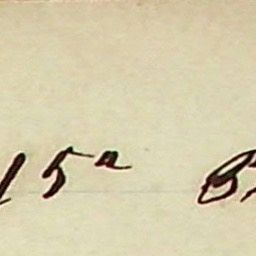 15ª B